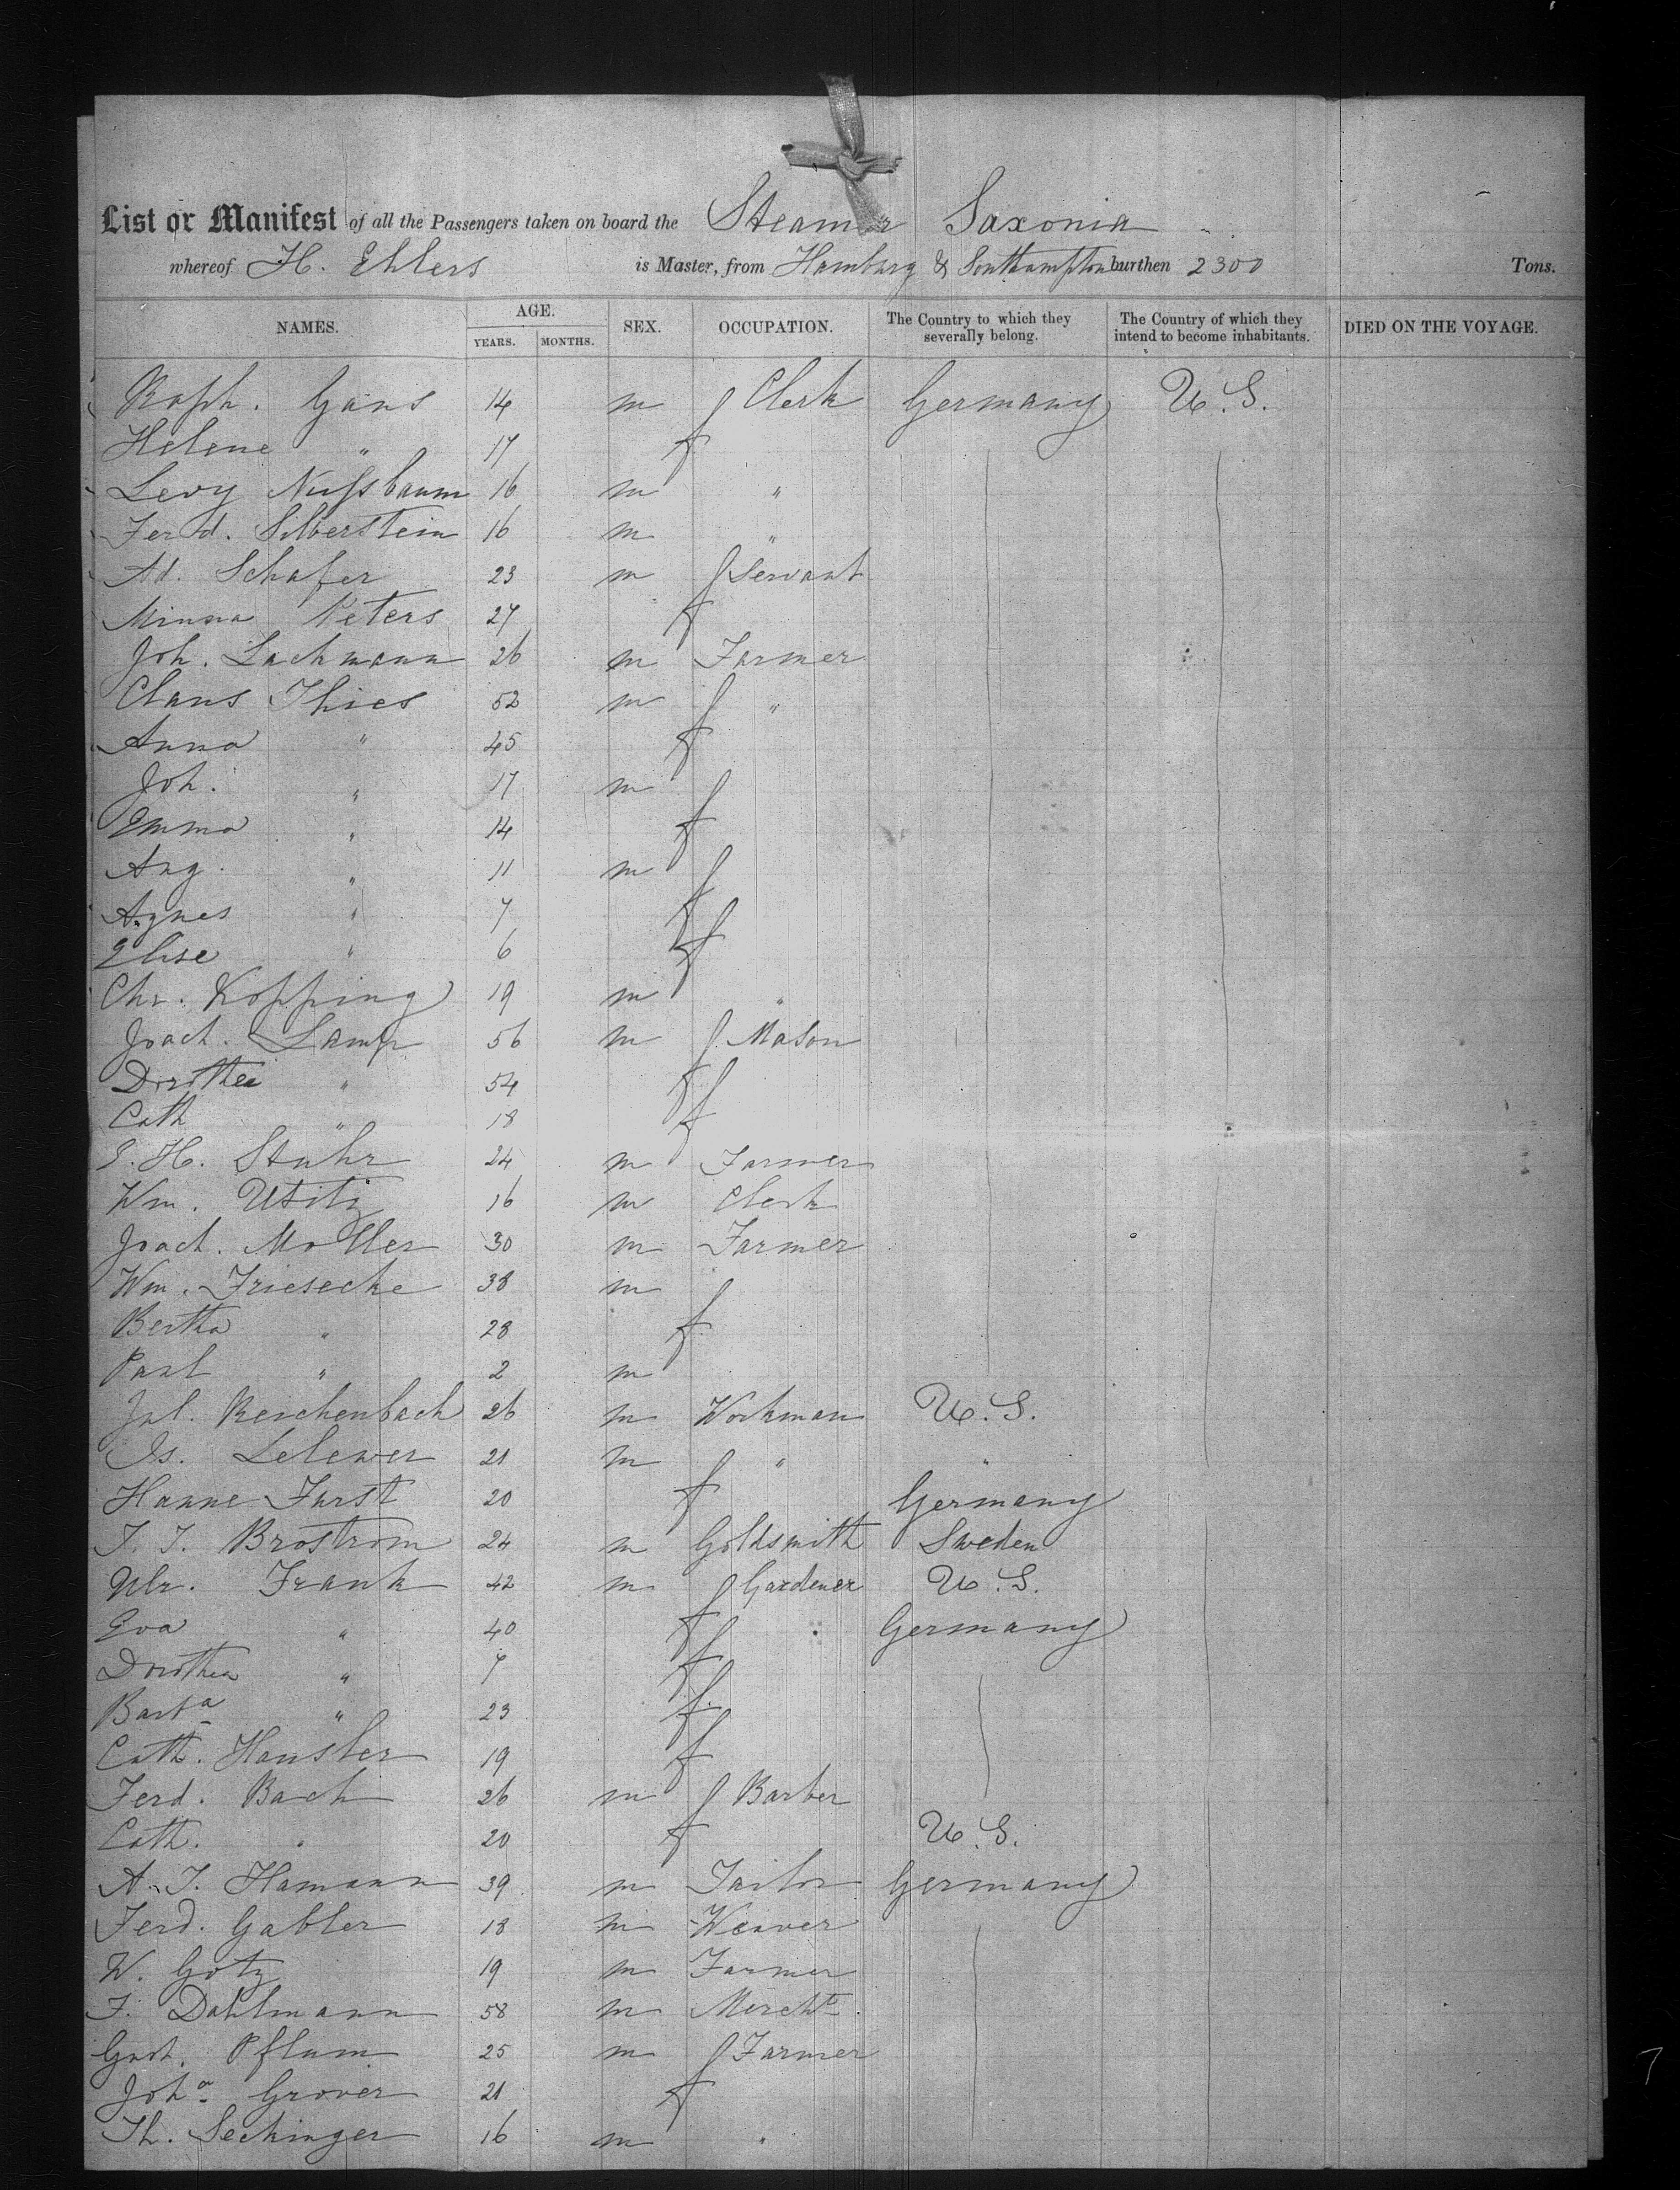 List or Manifest of all the Passengers taken on board the Steamer Saxonia
whereof H. Ehlers is Master, from Hamburg & Southampton burthen 2300 Tons.
NAMES. AGE. YEARS. MONTHS. SEX. OCCUPATION. The Country to which they severally belong. The Country of which they intend to become inhabitants. DIED ON THE VOYAGE.
Raph. Gans 14 m Clerk Germany U.S.
Helene " 17 f
Levy Nussbaum 16 m "
Ferd. Silberstein 16 m "
Ad. Schafer 23 m Servant
Minna Peters 27 f
Joh. Lachmann 26 m Farmer
Claus Thies 52 m "
Anna " 45 f
Joh. " 17 m
Emma " 14 f
Aug. " 11 m
Agnes " 7 f
Elise " 6 f
Chr. Kopping 19 m "
Joach. Lamp 56 m Mason
Dorothea " 54 f
Cath " 18 f
H. Stuhr 24 m Farmer
Wm. Utitz 16 m Clerk
Joach. Moller 30 m Farmer
Wm. Friesecke 38 m
Bertha " 28 f
Paul " 2 m
Jul. Reichenbach 26 m Workman U.S.
Is. Lelewer 21 m " "
Hanne Furst 20 f Germany
Brostrom 24 m Goldsmith Sweden
Ulr. Frank 42 m Gardener U.S.
Eva " 40 f Germany
Dorothea " 7 f
Barba " 23 f
Cath. Hausler 19 f
Ferd. Bach 26 m Barber
Cath. " 20 f U.S.
A. J. Hamann 39 m Tailor Germany
Ferd. Gabler 18 m Weaver
W. Gotz 19 m Farmer
F. Dahlmann 58 m Mercht.
Gust. Pflum 25 m Farmer
Joha Grover 21 f
Th. Sechinger 16 m "